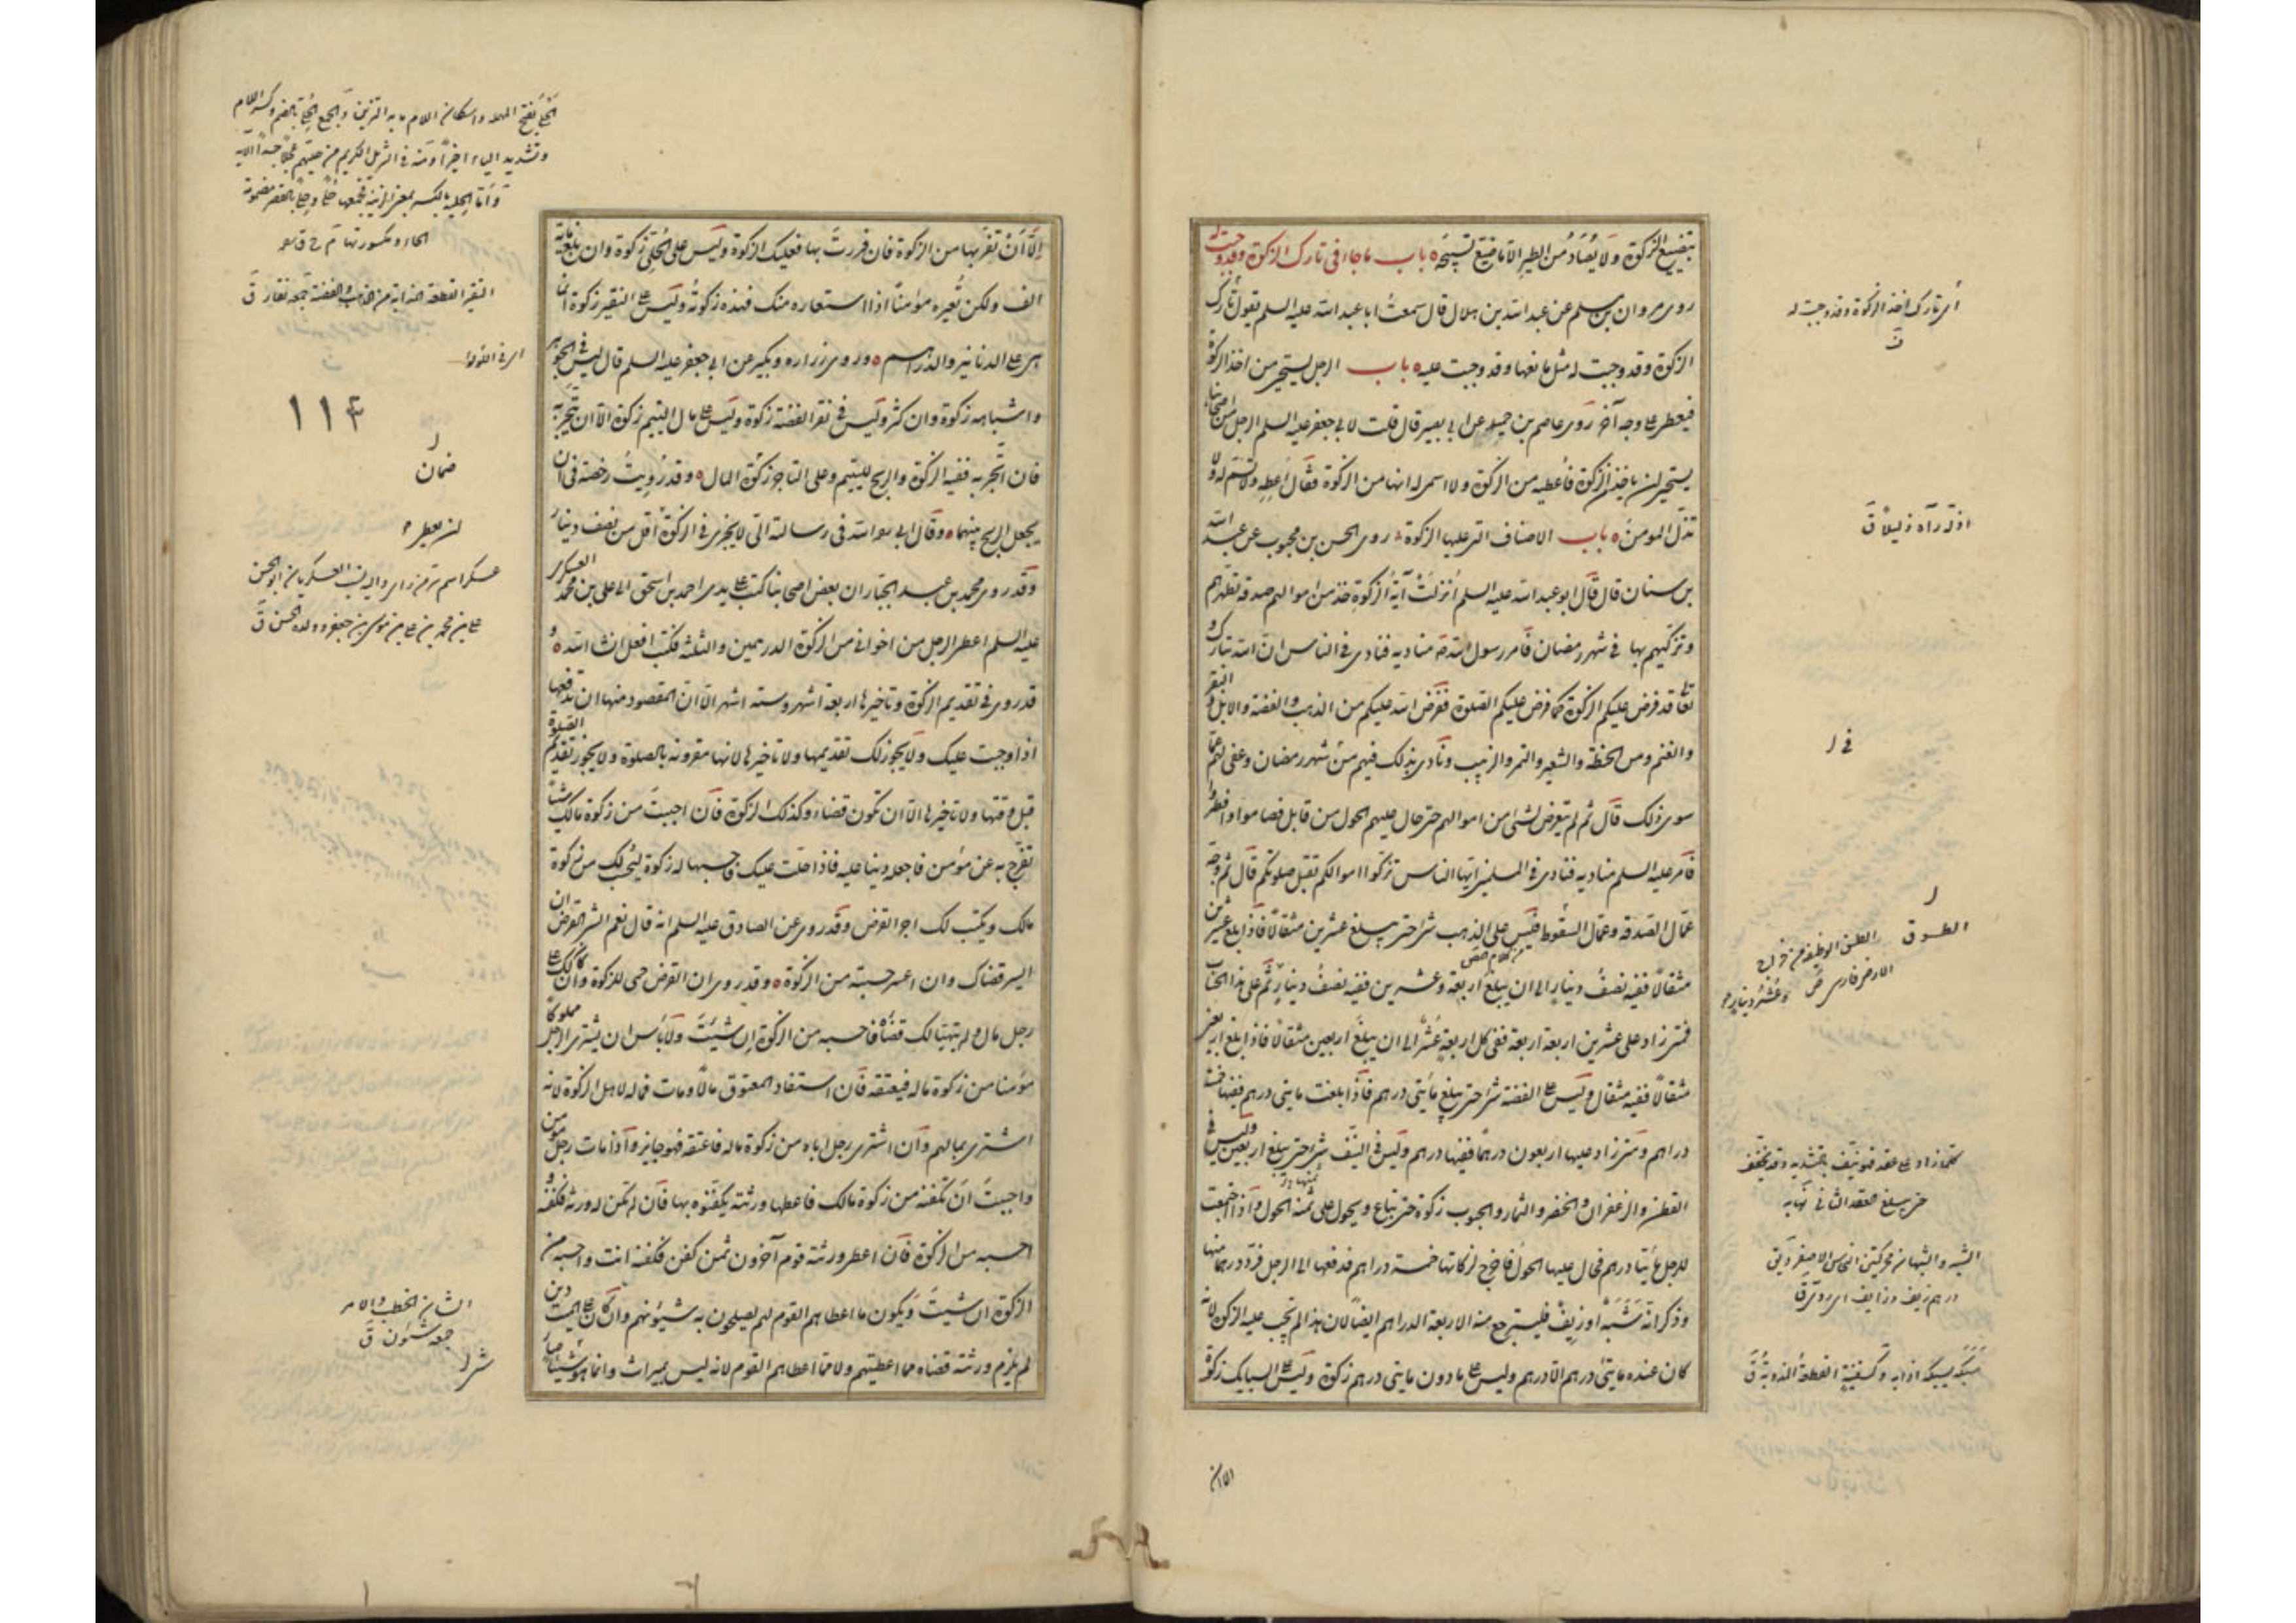 بتضييع الزكوة ولا يصاد من الطير الا ما ضيع تسبيحه باب ما جاء في تارك الزكوة وقد وجبت له
روى مروان بن مسلم عن عبد الله بن هلال قال سمعت ابا عبد الله عليه السلم يقول تارك
الزكوة وقد وجبت له مثل مانعها وقد وجبت عليه باب الرجل يستحيي من اخذ الزكوة
فيعطى على وجه آخر روى عاصم بن حميد عن ابي بصير قال قلت لابي جعفر عليه السلم الرجل من اصحابنا
يستحيي ان ياخذ من الزكوة فاعطيه من الزكوة ولا اسمي له انها من الزكوة فقال اعطه ولا تسم له ولا
تذل المومن باب الاصناف التي عليها الزكوة روى الحسن بن محبوب عن عبد الله
بن سنان قال قال ابو عبد الله عليه السلم انزلت آية الزكوة خذ من اموالهم صدقة تطهرهم
وتزكيهم بها في شهر رمضان فامر رسول الله ص مناديه فنادى في الناس ان الله تبارك و
تعا قد فرض عليكم الزكوة كما فرض عليكم الصلوة ففرض الله عليكم من الذهب والفضة والابل والبقر
والغنم ومن الحنطة والشعير والتمر والزبيب ونادى بذلك فيهم في شهر رمضان وعفى لهم عما
سوى ذلك قال ثم لم يتعرض لشئ من اموالهم حتى حال عليهم الحول من قابل فصاموا وافطروا
فامر عليه السلم مناديه فنادى في المسلمين ايها الناس زكوا اموالكم تقبل صلوتكم قال ثم وجه
عمال الصدقة وعمال الطسوق فليس على الذهب شئ حتى يبلغ عشرين مثقالا فاذا بلغ عشرين
مثقالا ففيه نصف دينار الى ان يبلغ اربعة وعشرين ففيه نصف دينار ثم على هذا الحساب
فمتى زاد على عشرين اربعة اربعة ففي كل اربعة عشر الى ان يبلغ اربعين مثقالا فاذا بلغ اربعين
مثقالا ففيه مثقال وليس على الفضة شئ حتى يبلغ مأيتي درهم فاذا بلغت مايتي درهم ففيها خمسة
دراهم ومتى زاد عليها اربعون درهما ففيها درهم وليس في النيف شئ حتى يبلغ اربعين وليس في
القطن والزعفران والخضر والثمار والحبوب زكوة حتى تباع ويحول على ثمنه الحول واذا اجتمعت
للرجل مأيتا درهم فحال عليها الحول فاخرج لزكاتها خمسة دراهم فدفعها الى الرجل فرد درهما منها
وذكر انه شبه او زيف فليسترجع منه الاربعة الدراهم ايضا لان هذا لم تجب عليه الزكوة لانه
كان عنده مايتي درهم الا درهم وليس على ما دون مايتي درهم زكوة وليس على السبايك زكوة
اى تارك اخذ الزكوة وقد وجبت له
اذله رآه ذليلا ق
في ل
الطسوق
كلما زاد على عقد فهو نيف بالتشديد وقد يخفف
حتى يبلغ العقد الثاني نهايه
الشبه والشبهان محركتين النحاس الاصفر ويق
درهم زيف وزايف اى ردى ق
سبكه يسبكه اذابه وكسفينة القطعة المذوبة ق
الا ان
الا ان تفر بها من الزكوة فان فررت بها فعليك الزكوة وليس على الحلي زكوة وان بلغ مائة
الف ولكن تعيره مؤمنا اذا استعاره منك فهذه زكوته وليس على النقير زكوة انما
هي على الدنانير والدراهم وروى زرارة وبكير عن ابي جعفر عليه السلم قال ليس في الجوهر
واشباهه زكوة وان كثر وليس في نقر الفضة زكوة وليس على مال اليتيم زكوة الا ان يتجر به
فان اتجر به ففيه الزكوة والربح لليتيم وعلى التاجر زكوة المال وقد رويت رخصة في ان
يجعل الربح بينهما وقال ابي ره الله في رسالته الى لا يجزى في الزكوة اقل من نصف دينار
وقد روى محمد بن عبد الجبار ان بعض اصحابنا كتب على يدي احمد بن اسحق الى علي بن محمد العسكري
عليه السلم اعطى الرجل من اخواني من الزكوة الدرهمين والثلثة فكتب افعل ان شاء الله و
قد روى في تقديم الزكوة وتاخيرها اربعة اشهر وستة اشهر الا ان المقصود منها ان تدفعها
اذا وجبت عليك ولا يجوز لك تقديمها ولا تاخيرها لانها مقرونة بالصلوة ولا يجوز تقديم الصلوة
قبل وقتها ولا تاخيرها الا ان تكون قضاء وكذلك الزكوة فان احببت من زكوة مالك شيئا
تفرج به عن مؤمن فاجعله دينا عليه فاذا حلت عليك فاحسبها له زكوة ليحسب لك من زكوة
مالك ويكتب لك اجر القرض وقد روى عن الصادق عليه السلم انه قال نعم الشئ القرض ان
ايسر قضاك وان اعسر حسبته من الزكوة وقد روى ان القرض حمى للزكوة وان كان لك على
رجل مال ولم يتهيأ لك قضاه فاحسبه من الزكوة ان شئت ولا بأس ان يشترى الرجل مملوكا
مؤمنا من زكوة ماله فيعتقه فان استفاد المعتوق مالا ومات فماله لاهل الزكوة لانه
اشترى بمالهم وان اشترى رجل اباه من زكوة ماله فاعتقه فهو جايز واذا مات رجل مومن
واحببت ان تكفنه من زكوة مالك فاعطها ورثته يكفنوه بها فان لم تكن له ورثة فكفنه و
احسبه من الزكوة فان اعطى ورثته قوم آخرون ثمن كفن فكفنه انت واحسبه من
الزكوة ان شئت ويكون ما اعطاهم القوم لهم يصلحون به شئونهم وان كان على الميت دين
لم يلزم ورثته قضاه مما اعطيتهم ولا مما اعطاهم القوم لانه ليس بميراث وانما هو شئ صار
الحلي بفتح المهملة واسكان اللام ما به التزين والجمع الحلي بالضم وكسر اللام
وتشديد الياء اخيرا ومنه في التنزيل الكريم من حليهم عجلا جسدا الآيه
النقير القطعة المذابة من الذهب والفضة جمعه نقار ق
اى في اللؤلؤ
۱۱۴
ضمان
ان يعطى
الشان الخطب والامر
جمعه شئون ق
شئ ل